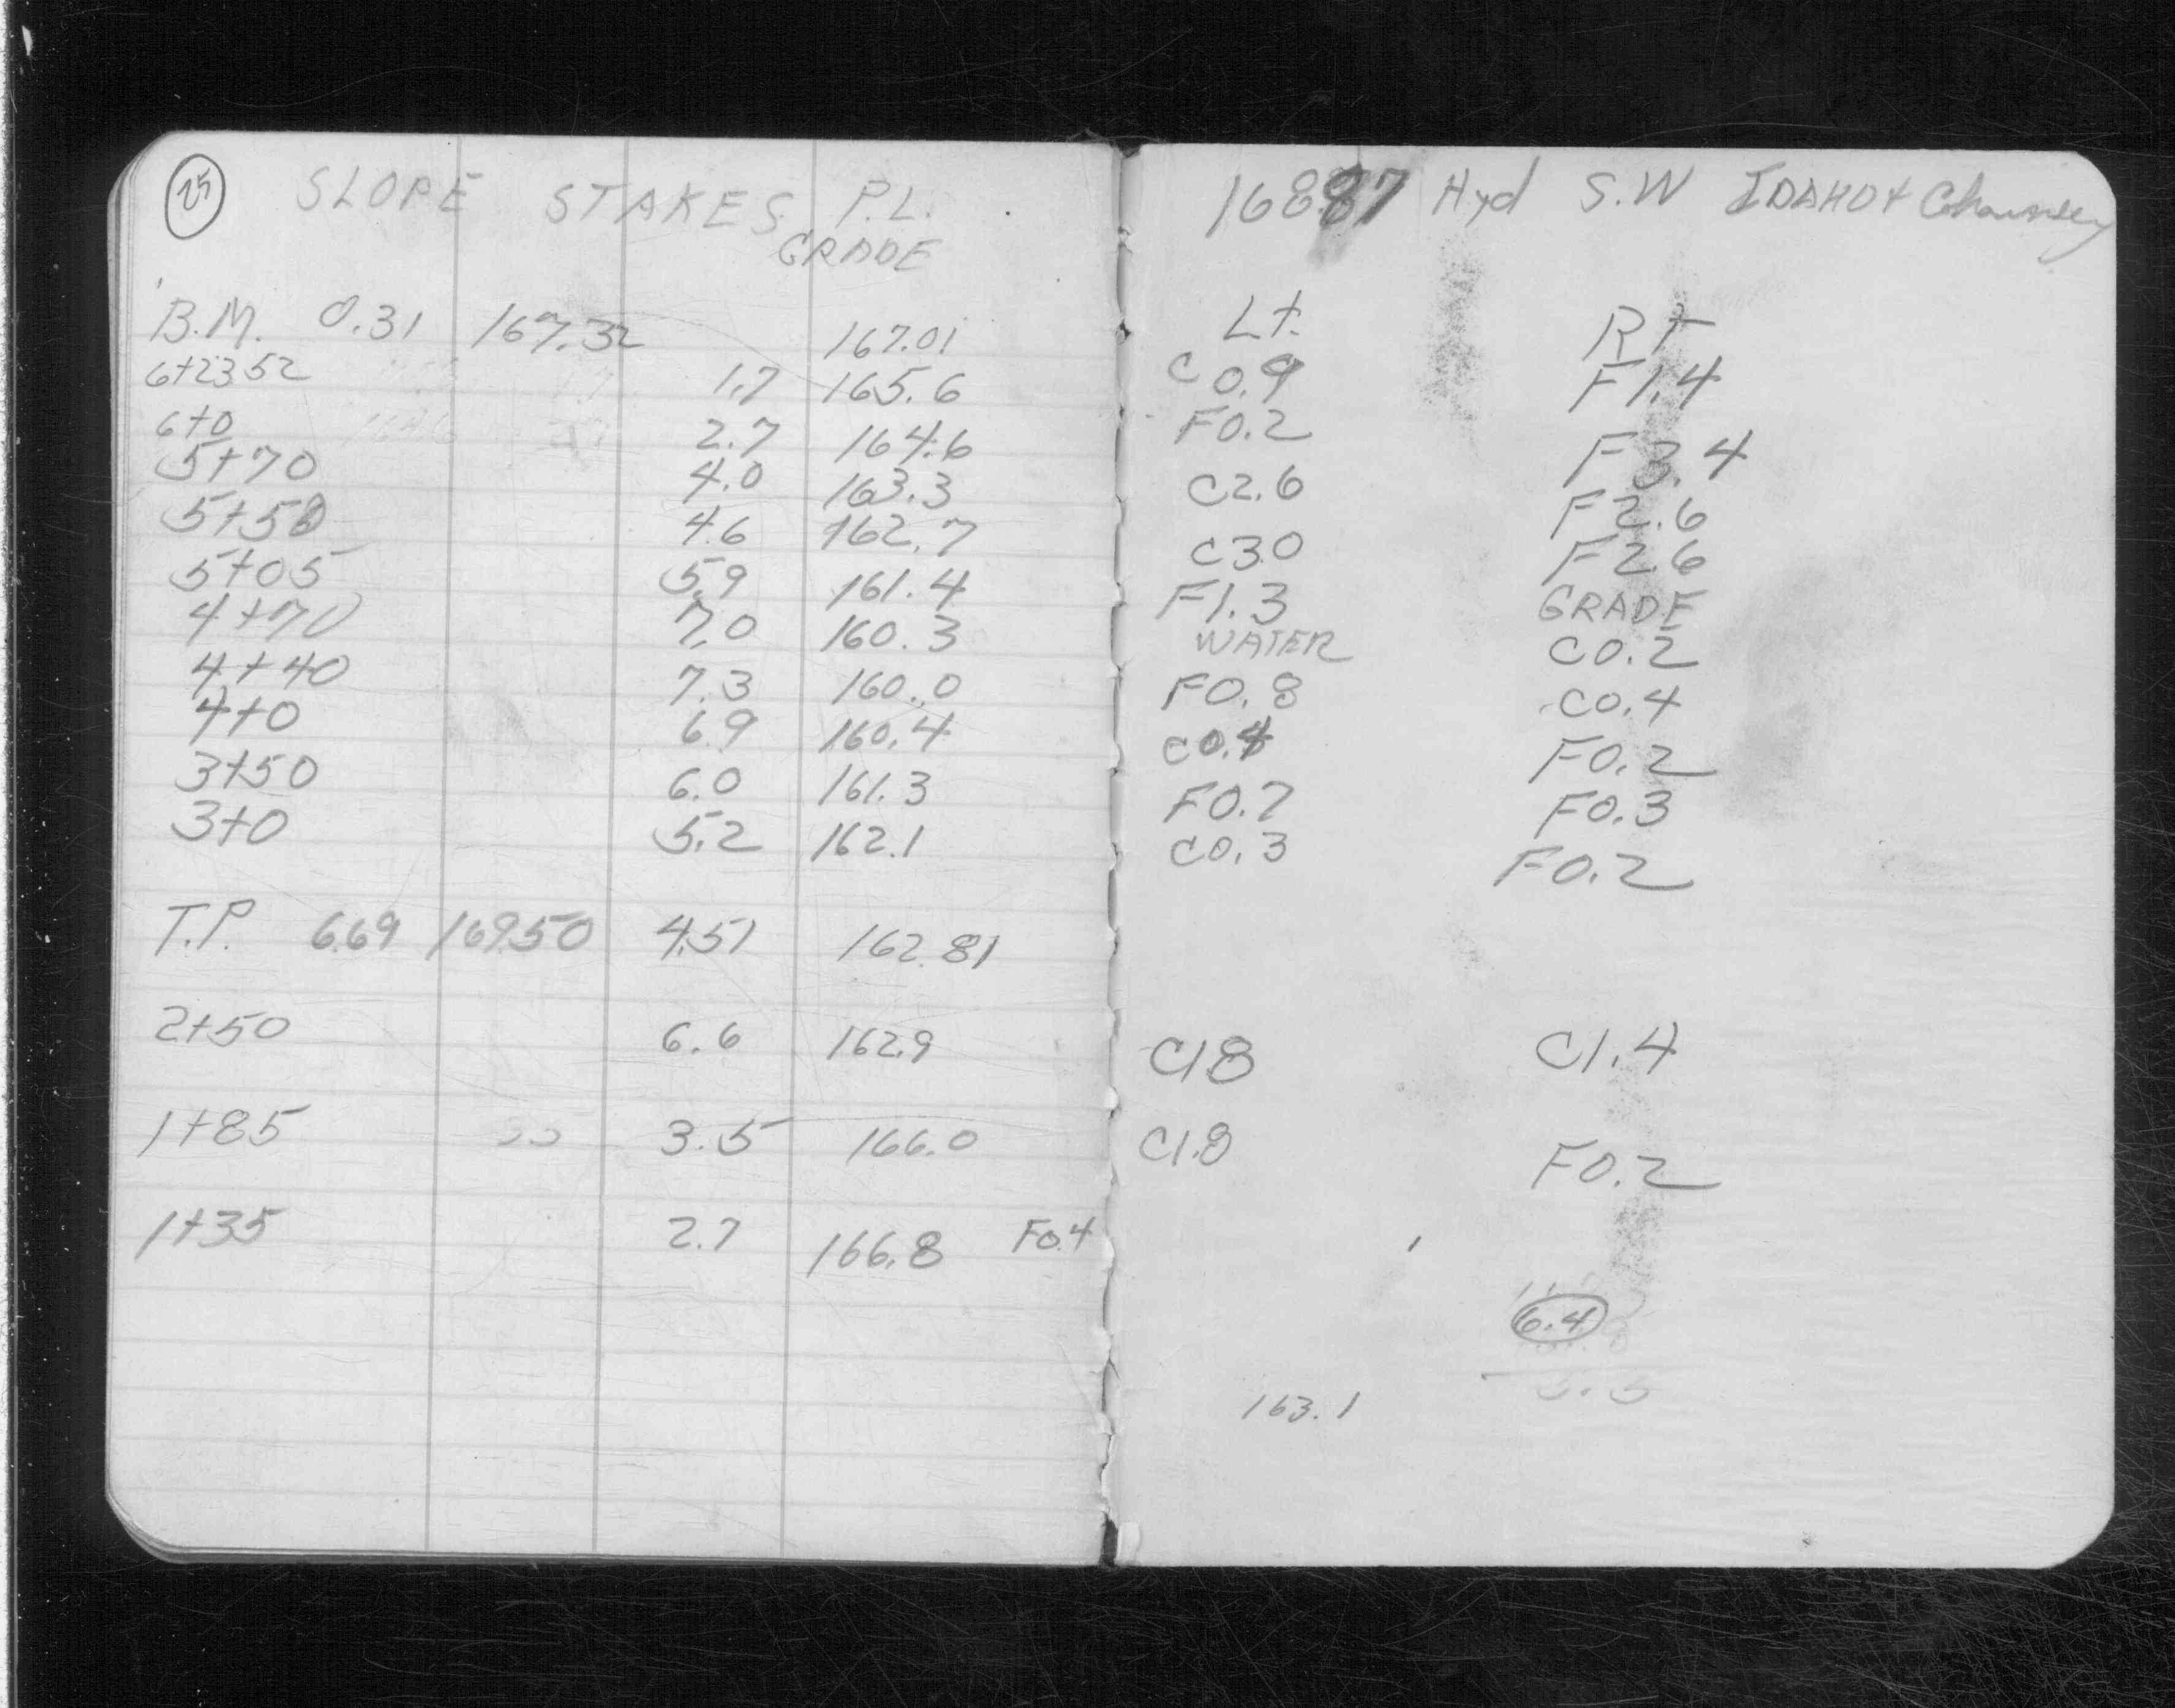 25 SLOPE STAKES P.L.
GRADE
B.M. 0.31 167.32 167.01
6+23.52 1.7 165.6
6+0 2.7 164.6
5+70 4.0 163.3
5+50 4.6 162.7
5+05 5.9 161.4
4+70 7.0 160.3
4+40 7.3 160.0
4+0 6.9 160.4
3+50 6.0 161.3
3+0 5.2 162.1
T.P. 6.69 169.50 4.51 162.81
2+50 6.6 162.9
1+85 3.5 166.0
1+35 2.7 166.8 F0.4
16887 Hyd S.W IDAHO + Chauncey
Lt. RT
C0.9 F1.4
F0.2 F3.4
C2.6 F2.6
C3.0 F2.6
F1.3 GRADE
WATER C0.2
F0.8 C0.4
C0.4 F0.2
F0.7 F0.3
C0.3 F0.2
C1.8 C1.4
C1.8 F0.2
6.4
163.1